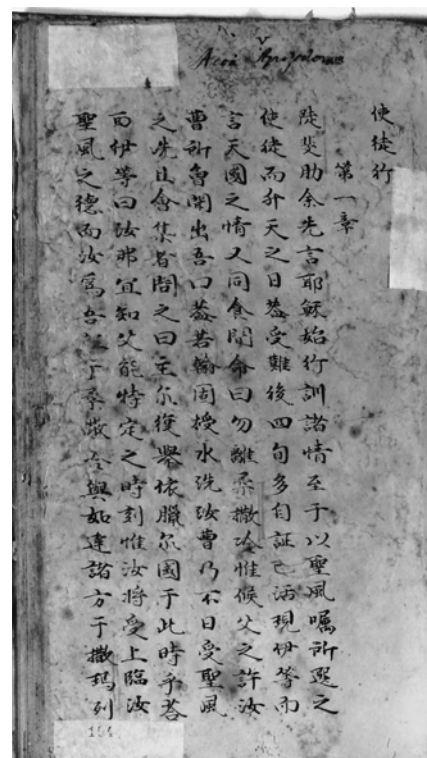 Acta Apostolorum
使徒行
第一章
陡斐肋余先言耶穌始行訓諸情至于以聖風囑所選之
使徒而升天之日葢受難後四旬多自証已活現伊等而
言天國之情又同食間命曰勿離柔撒冷惟候父之許汝
曹所魯聞出吾口葢若翰固授水洗汝曹乃不日受聖風
之洗且會集者問之曰主尔復舉依臘尔國于此時乎荅
而伊等曰汝弗宜知父能特定之時刻惟汝將受上臨汝
聖風之德而汝爲吾証于柔撒冷與如達諸方于撒瑪列